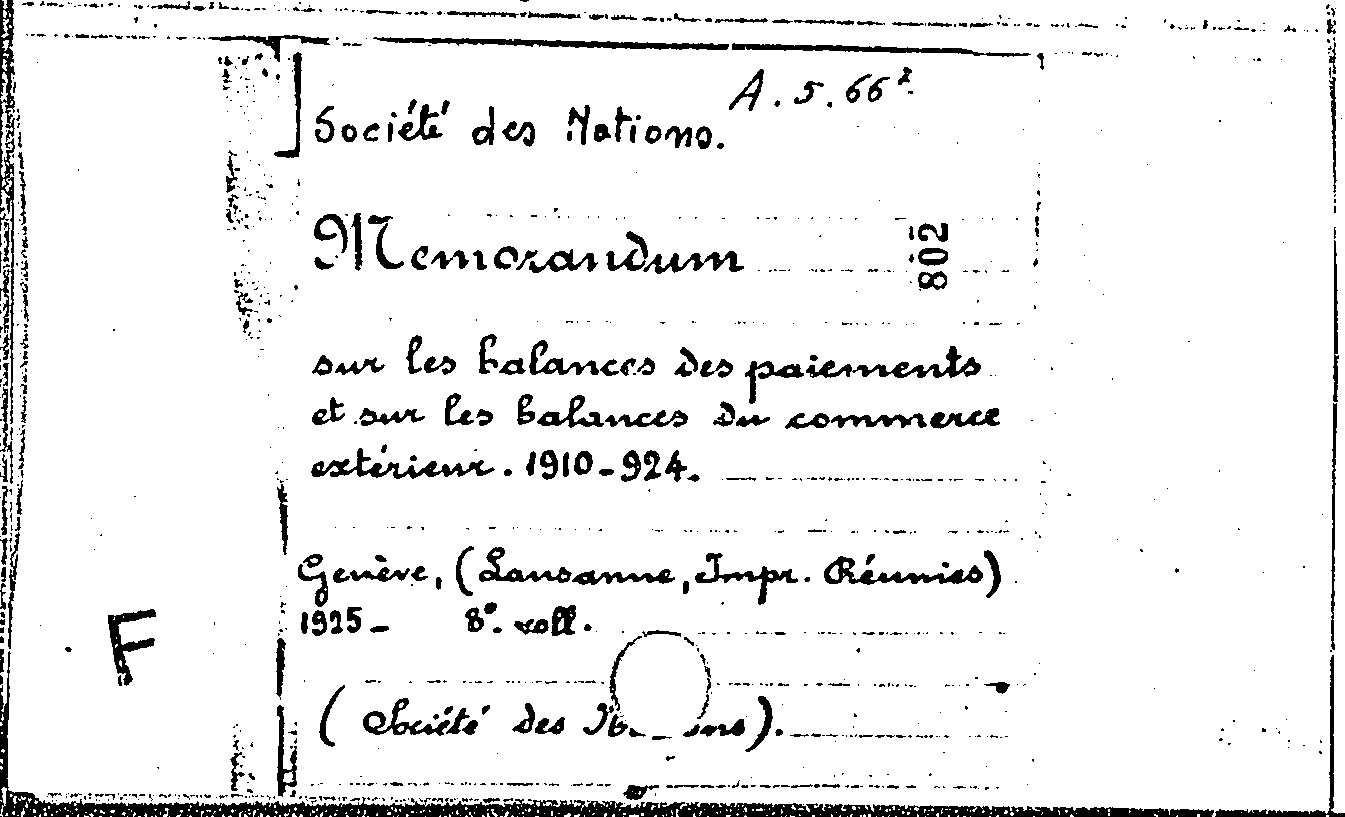 A.5.66²
Société des Nations.
Memorandum
802
sur les balances des paiements
et sur les balances du commerce
extérieur. 1910-924.
Genève, (Lausanne, Impr. Réunies)
1925- 8°. voll.
F
(Société des